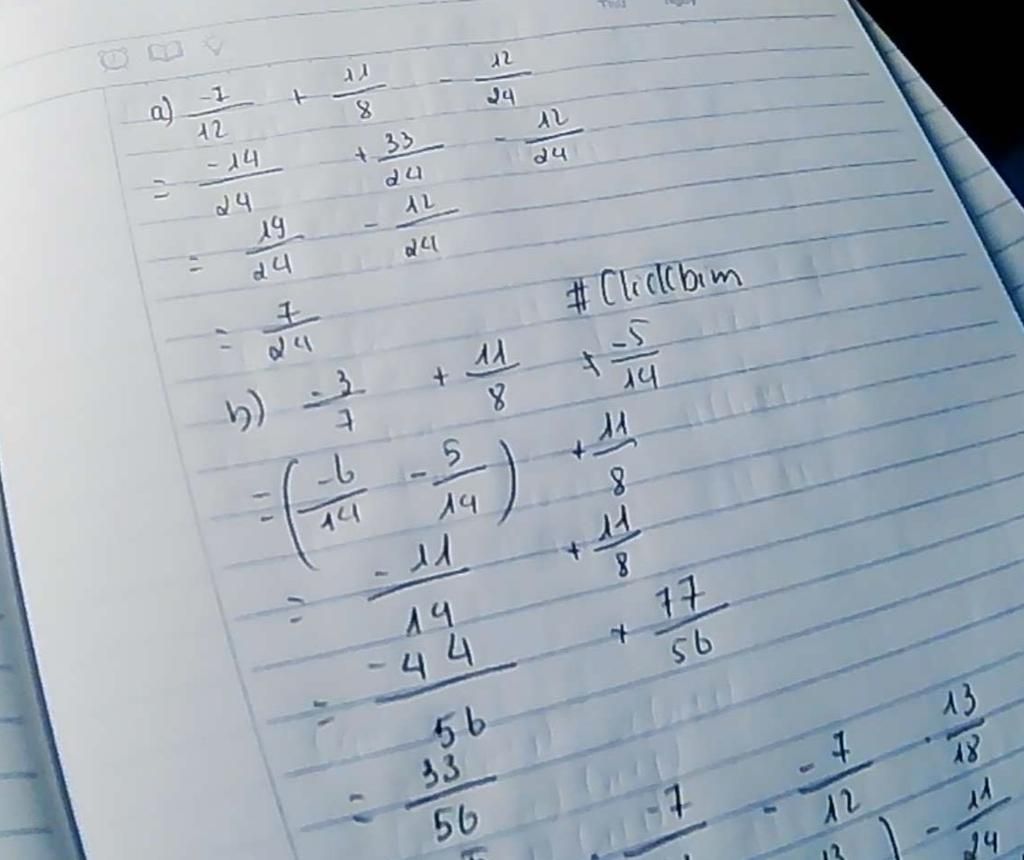 a) -7/12 + 11/8 - 12/24
= -14/24 + 33/24 - 12/24
= 19/24 - 12/24
= 7/24
#Clickbim
b) -3/7 + 11/8 + -5/14
= (-6/14 - 5/14) + 11/8
= -11/14 + 11/8
= -44/56 + 77/56
= 33/56
-7 - -7/12 . 13/18
13 ) - 11/24